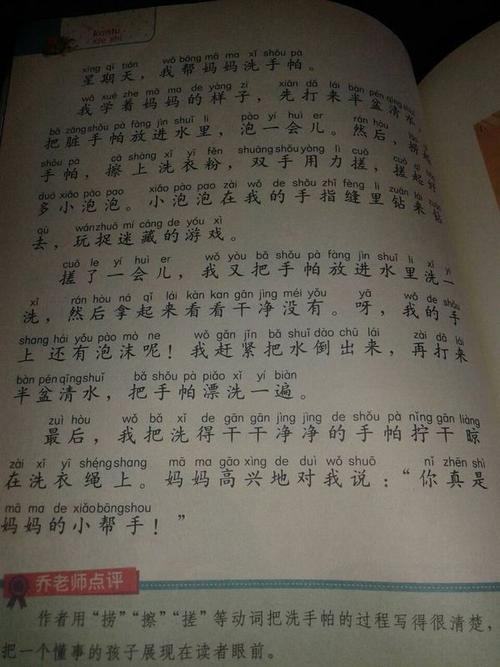 xīng qī tiān wǒ bāng mā ma xǐ shǒu pà
星期天，我帮妈妈洗手帕。
wǒ xué zhe mā ma de yàng zi xiān dǎ lái bàn pén qīng shuǐ
我学着妈妈的样子，先打来半盆清水，
bǎ zāng shǒu pà fàng jìn shuǐ lǐ pào yí huì er rán hòu
把脏手帕放进水里，泡一会儿。然后，捞起
shǒu pà cā shàng xǐ yī fěn shuāng shǒu yòng lì cuō
手帕，擦上洗衣粉，双手用力搓，搓起
duō xiǎo pào pao xiǎo pào pao zài wǒ de shǒu zhǐ fèng lǐ zuān lái zuān
多小泡泡。小泡泡在我的手指缝里钻来钻
qù wán zhuō mí cáng de yóu xì
去，玩捉迷藏的游戏。
cuō le yí huì er wǒ yòu bǎ shǒu pà fàng jìn shuǐ lǐ xǐ yī
搓了一会儿，我又把手帕放进水里洗一
xǐ rán hòu ná qǐ lái kàn kan gān jìng méi yǒu yā wǒ de shǒu
洗，然后拿起来看看干净没有。呀，我的手
shang hái yǒu pào mò ne wǒ gǎn jǐn bǎ shuǐ dào chū lái zài dǎ lái
上还有泡沫呢！我赶紧把水倒出来，再打来
bàn pén qīng shuǐ bǎ shǒu pà piǎo xǐ yí biàn
半盆清水，把手帕漂洗一遍。
zuì hòu wǒ bǎ xǐ de gān gān jìng jìng de shǒu pà níng gān liàng
最后，我把洗得干干净净的手帕拧干晾
zài xǐ yī shéng shang mā ma gāo xìng de duì wǒ shuō nǐ zhēn shì
在洗衣绳上。妈妈高兴地对我说：“你真是
mā ma de xiǎo bāng shou
妈妈的小帮手！”
乔老师点评
作者用“捞”“擦”“搓”等动词把洗手帕的过程写得很清楚，
把一个懂事的孩子展现在读者眼前。